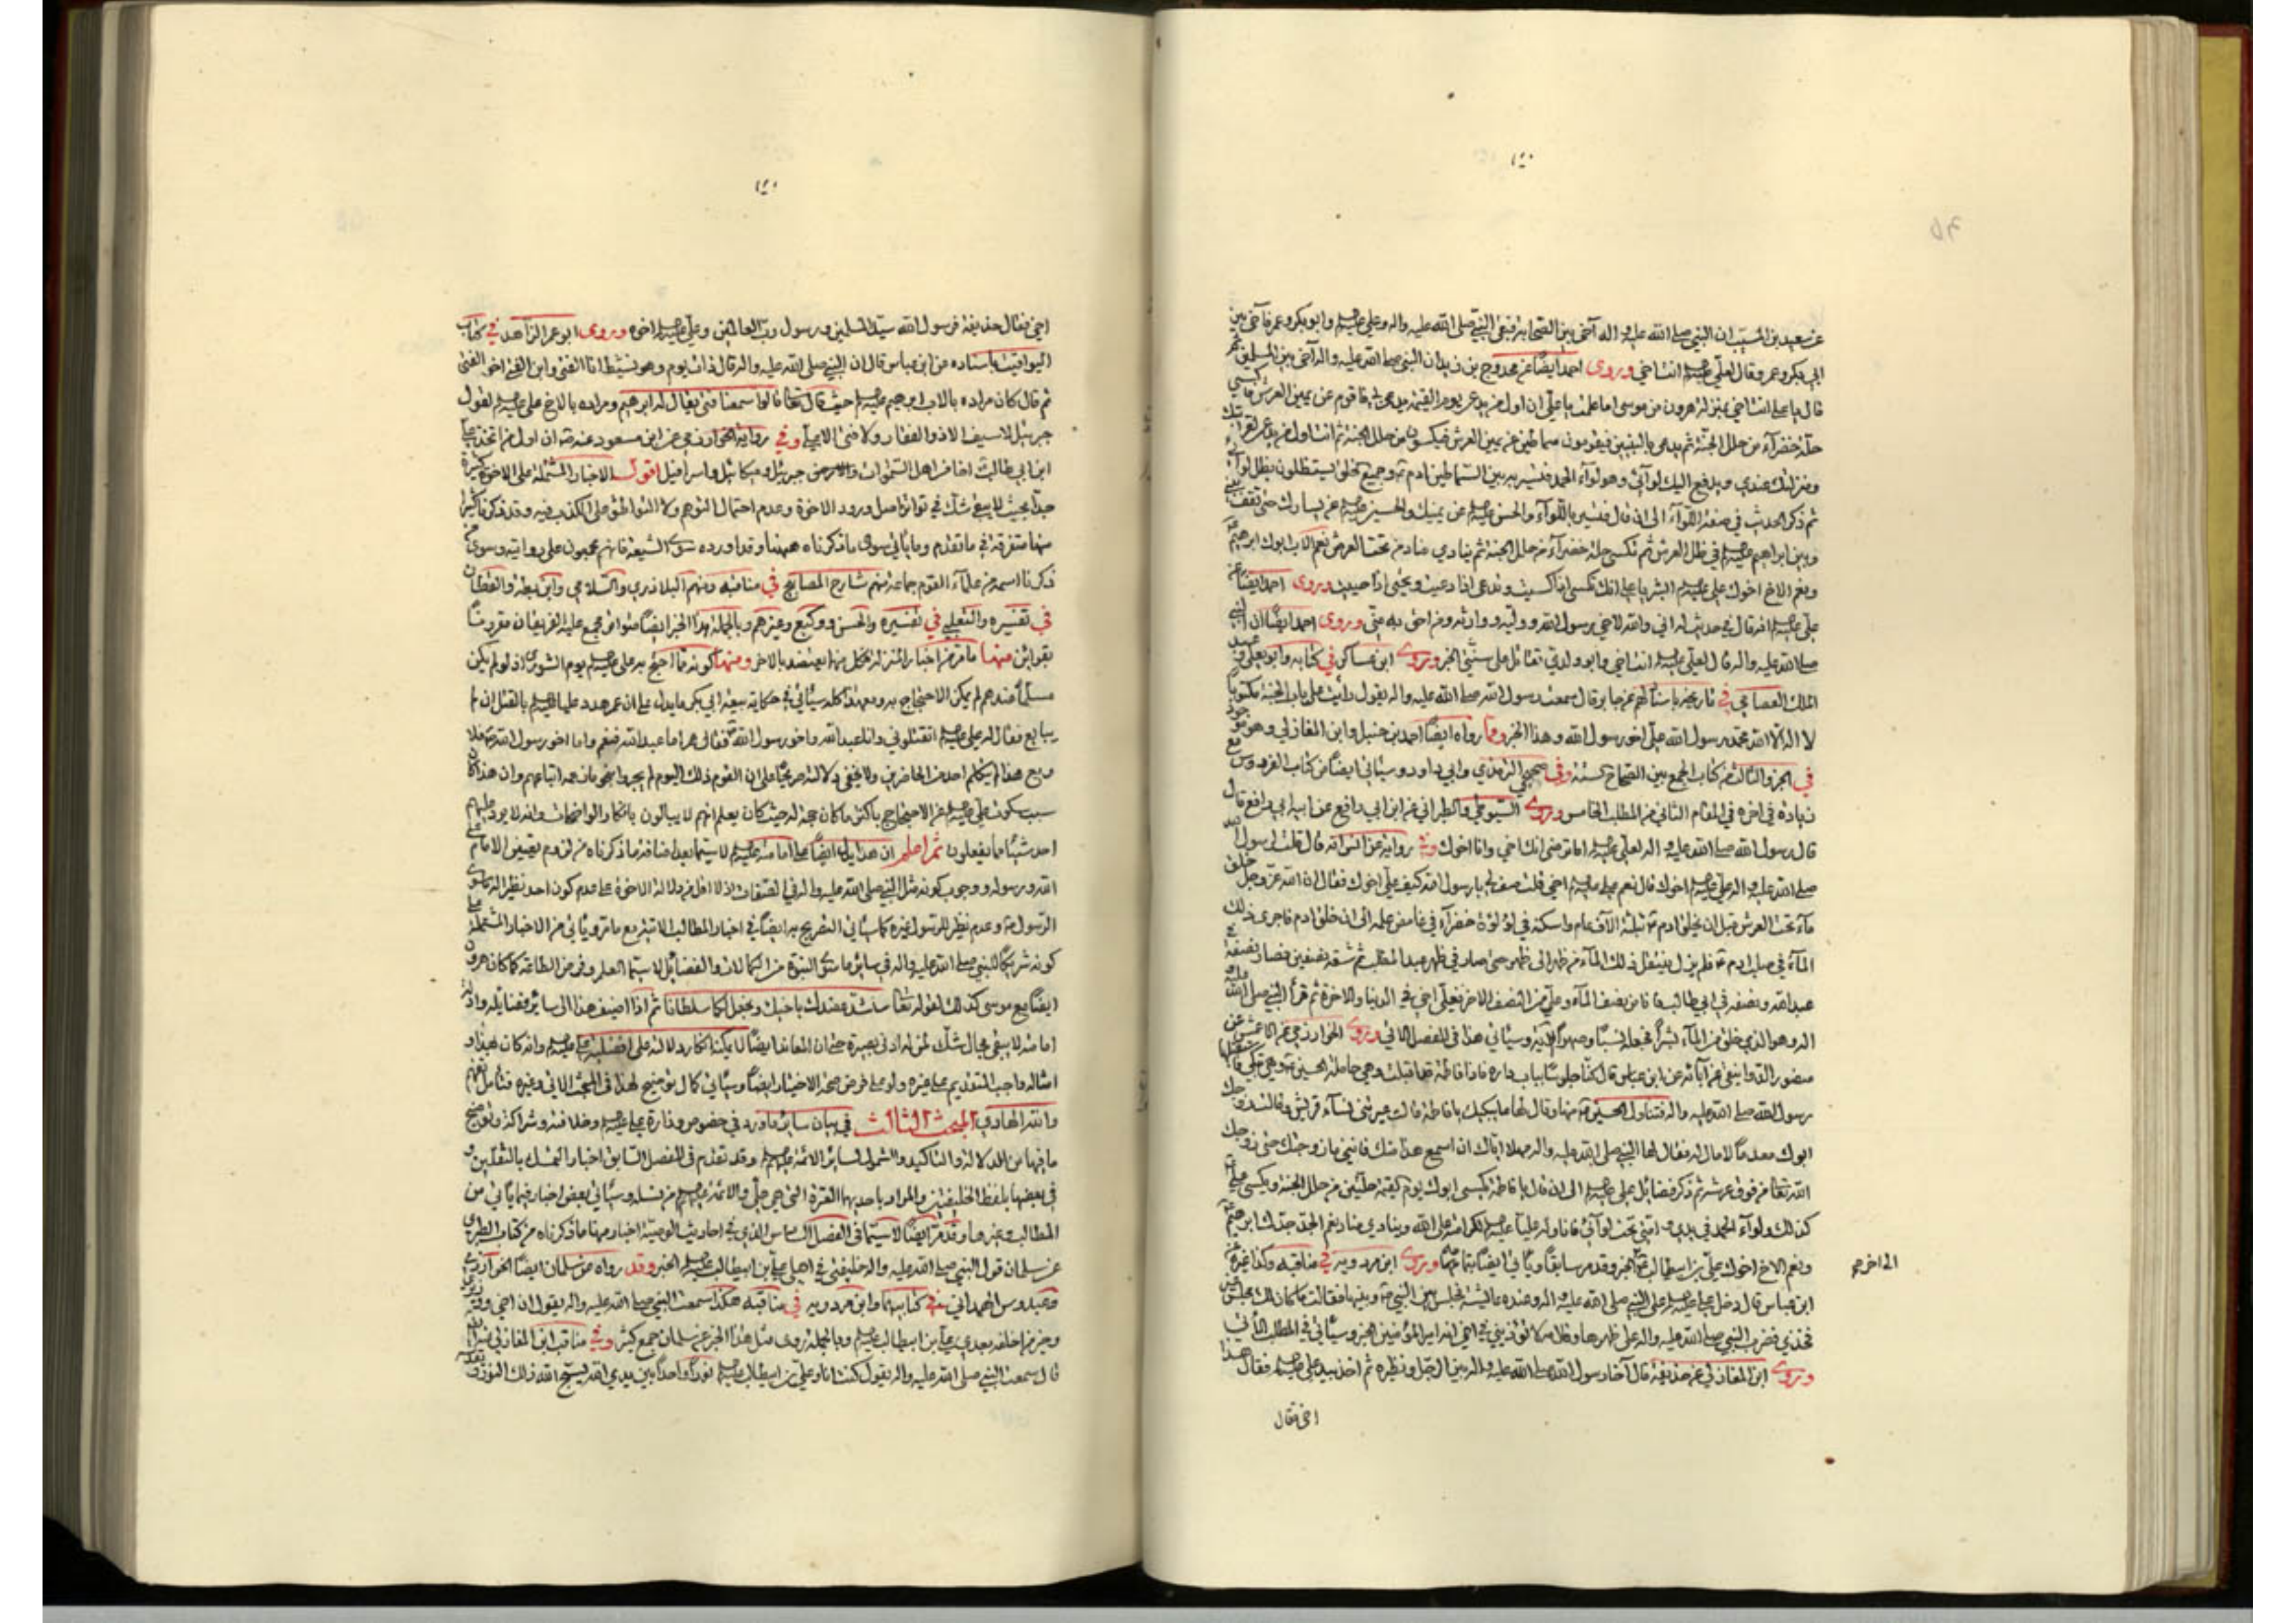 ١٤٠
عن سعيد بن المسيب ان النبي صلى الله عليه واله آخى بين الصحابة فبقي النبي صلى الله عليه واله وعلي عليه السلم وابو بكر وعمر فآخى بين
ابي بكر وعمر وقال لعلي عليه السلم انت اخي وروى احمد ايضا عن محدوج بن زيد ان النبي صلى الله عليه واله آخى بين المسلمين ثم
قال يا علي انت اخي بمنزلة هرون من موسى اما علمت يا علي ان اول من يدعى يوم القيمة يدعى بي فاقوم عن يمين العرش فاكسى
حلة خضرآء من حلل الجنة ثم يدعى بالنبيين فيقومون سماطين عن يمين العرش فيكسون من حلل الجنة ثم انت اول من يدعى لقرابتك
ومنزلتك عندي ويدفع اليك لوآئي وهو لوآء الحمد فتسير به بين السماطين ادم وجميع الخلق يستظلون بظل لوآئي
ثم ذكر الحديث في صفة اللوآء الى ان قال فتسير باللوآء والحسن عليه السلم عن يمينك والحسين عليه السلم عن يسارك حتى تقف بيني
وبين ابراهيم عليه السلم في ظل العرش ثم تكسى حلة خضرآء من حلل الجنة ثم ينادي مناد من تحت العرش نعم الاب ابوك ابرهيم
ونعم الاخ اخوك علي عليه السلم ابشر يا علي انك تكسى اذا كسيت وتدعى اذا دعيت وتحيى اذا حييت وروى احمد ايضا عن
علي عليه السلم انه قال في حديث له اني والله لاخي رسول الله ووليه ووارثه ومن احق به مني وروى احمد ايضا ان النبي
صلى الله عليه واله قال لعلي عليه السلم انت اخي وابو ولدي تقاتل على سنتي الخبر وروى ابن عساكر في كتابه وابو يعلى وعبد
الملك العصامي في تاريخه باسنادهم عن جابر قال سمعت رسول الله صلى الله عليه واله يقول رأيت على باب الجنة مكتوبا
لا اله الا الله محمد رسول الله علي اخو رسول الله وهذا الخبر رواه ايضا احمد بن حنبل وابن المغازلي وهو موجود
في الجزء الثالث من كتاب الجمع بين الصحاح الستة وفي صحيحي الترمذي وابي داود وسيأتي ايضا من كتاب الفردوس مع
زيادة في اخره في المقام الثاني من المطلب الخامس وروى السيوطي والطبراني عن ابن ابي رافع عن ابيه ابي رافع قال
قال رسول الله صلى الله عليه واله لعلي عليه السلم اما ترضى انك اخي وانا اخوك وفي رواية عن انس انه قال قلت لرسول الله
صلى الله عليه واله علي عليه السلم اخوك قال نعم علي عليه السلم اخي قلت صف لي يا رسول الله كيف علي اخوك فقال ان الله عز وجل خلق
مآء تحت العرش قبل ان يخلق ادم بثلثة آلاف عام واسكنه في لؤلؤة خضرآء في غامض علمه الى ان خلق ادم فاجرى ذلك
المآء في صلب ادم فلم يزل ينتقل ذلك المآء من ظهر الى ظهر حتى صار في ظهر عبد المطلب ثم شقه نصفين فصار نصفه في
عبد الله ونصفه في ابي طالب فانا من نصف المآء وعلي من النصف الاخر فعلي اخي في الدنيا والاخرة ثم قرأ النبي صلى الله عليه و
اله وهو الذي خلق من المآء بشرا فجعله نسبا وصهرا الاية وسيأتي هذا في الفصل الاتي وروى الخوارزمي عن الاعمش عن
منصور الدوانيقي عن آبائه عن ابن عباس قال كنا جلوسا بباب داره فاذا فاطمة قد اقبلت وهي حاملة الحسين وهي تبكي فاستقبلها
رسول الله صلى الله عليه واله فتناول الحسين منها وقال لها ما يبكيك يا فاطمة قالت عيرتني نسآء قريش وقالت زوجك
ابوك معدما لا مال له فقال لها النبي صلى الله عليه واله مهلا اياك ان اسمع هذا منك فانني ما زوجتك حتى زوجك
الله تعالى من فوق عرشه ثم ذكر فضائل علي عليه السلم الى ان قال يا فاطمة يكسى ابوك يوم القيمة حلتين من حلل الجنة ويكسى علي
كذلك ولوآء الحمد في يدي وامتي تحت لوآئي فاناوله عليا عليه السلم لكرامته على الله وينادي مناد نعم الجد جدك ابرهيم
ونعم الاخ اخوك علي بن ابيطالب الخبر وقد مر سابقا ويأتي ايضا بتمامه وروى ابن مردويه في مناقبه وكذا غيره عن
ابن عباس قال دخل علي عليه السلم على النبي صلى الله عليه واله وعنده عائشة فجلس بين النبي وبينها فقالت ما كان لك مجلس غير
فخذي فضرب النبي صلى الله عليه واله على ظهرها وقال مه لا تؤذيني في اخي انه امير المؤمنين الخبر وسيأتي في المطلب الآتي
وروى ابن المغازلي عن حذيفة قال آخا رسول الله صلى الله عليه واله بين الرجل ونظيره ثم اخذ بيد علي عليه السلم فقال هذا
الى اخرهم
اخي فقال
١٤٠
اخي فقال حذيفة فرسول الله سيد المسلمين ورسول رب العالمين وعلي عليه السلم اخوه وروى ابو عمر الزاهد في كتاب
اليواقيت باسناده عن ابن عباس قال ان النبي صلى الله عليه واله قال ذات يوم وهو نشيط انا الفتى وابن الفتى اخو الفتى
ثم قال كان مراده بالاب ابرهيم عليه السلم حيث قال تعالى قالوا سمعنا فتى يقال له ابرهيم ومراده بالاخ علي عليه السلم لقول
جبرئيل لا سيف الا ذو الفقار ولا فتى الا علي وفي رواية الخوارزمي عن ابن مسعود عنه انه ان اول من اتخذ علي
ابن ابي طالب اخا من اهل السموات والارض جبرئيل وميكائيل واسرافيل اقول الاخبار المشتملة على الاخوة كثيرة
جدا بحيث لا يبقى شك في تواتر اصل ورود الاخوة وعدم احتمال التوهم ولا التواطؤ على الكذب فيه وقد ذكرنا كثيرا
منها متفرقة في ما تقدم وما يأتي سوى ما ذكرناه ههنا وقد اورده سوى الشيعة فانهم مجمعون على روايته وسوى من
ذكرنا اسمه من علمآء القوم جماعة منهم شارح المصابيح في مناقبه ومنهم البلاذري والسلامي وابن بطة والقطان
في تفسيره والثعلبي في تفسيره والحسن ووكيع وغيرهم وبالجملة هذا الخبر ايضا متواتر مجمع عليه الفريقان مقرونا
بقرائن منها ما مر من اخبار المنزلة فكل منها يعتضد بالاخر ومنها كونه مما احتج به علي عليه السلم يوم الشورى اذ لو لم يكن
مسلما عندهم لم يمكن الاحتجاج به ومع هذا كله سيأتي في حكاية بيعة ابي بكر ما يدل على ان عمر هدد عليا عليه السلم بالقتل ان لم
يبايع فقال له علي عليه السلم اتقتلوني وانا عبد الله واخو رسول الله فقال عمر اما عبد الله فنعم واما اخو رسول الله فلا
ومع هذا لم يتكلم احد من الحاضرين ولا يخفى دلالته صريحا على ان القوم ذلك اليوم لم يجروا نحو ما نحن اتباعهم وان هذا كان
سبب سكوت علي عليه السلم عن الاحتجاج باكثر ما كان حجة له حيث كان يعلم انهم لا يبالون بانكار الواضحات وانه لا يرد عليهم
احد شيئا مما يفعلون ثم اعلم ان هذا دليل ايضا على امامته عليه السلم لا سيما بعد اضافة ما ذكرناه من لزوم تعيين الامام على
الله ورسوله ووجوب كونه مثل النبي صلى الله عليه واله في الصفات اذ لا اقل من دلالة الاخوة على عدم كون احد نظيرا له سوى
الرسول وعدم نظير للرسول غيره كما سيأتي التصريح به ايضا في اخبار المطالب الاتية مع ما مر ويأتي من الاخبار المشتملة على
كونه شريكا للنبي صلى الله عليه واله في سائر ما سوى النبوة من الكمالات والفضائل لا سيما العلم وفرض الطاعة كما كان هرون
ايضا مع موسى كذلك لقوله تعالى سنشد عضدك باخيك ونجعل لكما سلطانا ثم اذا اضيف هذا الى سائر فضايله وادلة
امامته لا يبقى مجال شك لمن له ادنى بصيرة حتى ان المعاند ايضا لا يمكنه انكار دلالته على افضلية علي عليه السلم وانه كان بهذا و
امثاله واجب التقديم على غيره ولو على فرض صحة الاختيار ايضا وسيأتي كمال توضيح لهذا في المبحث الاتي وغيره فتأمل تفهم
والله الهادي المبحث الثالث في بيان سائر ما ورد في خصوص وزارة علي عليه السلم وخلافته وشراكته وتوضيح
ما فيها من الدلالة والتاكيد والشمول لسائر الائمة عليهم السلم وقد تقدم في الفصل السابق اخبار التمسك بالثقلين و
في بعضها بلفظ الخليفتين والمراد باحديهما العترة التي هي علي والائمة عليهم السلم من نسله وسيأتي بعض اخبار فيما يأتي من
المطالب وغيرها وقد مر ايضا لا سيما في الفصل السادس الذي في احاديث الوصية اخبار منها ما ذكرناه من كتاب الطبري
عن سلمان قول النبي صلى الله عليه واله خليفتي في اهلي علي بن ابيطالب عليه السلم الخبر وقد رواه عن سلمان ايضا الخوارزمي
وعبدوس الهمداني في كتابيهما وابن مردويه في مناقبه هكذا سمعت النبي صلى الله عليه واله يقول ان اخي ووزيري
وخير من اخلفه بعدي علي بن ابيطالب عليه السلم وبالجملة روى مثل هذا الخبر عن سلمان جمع كثير وفي مناقب ابن المغازلي
قال سمعت النبي صلى الله عليه واله يقول كنت انا وعلي بن ابيطالب عليه السلم نورا واحدا بين يدي الله يسبح الله ذلك النور ويقدسه